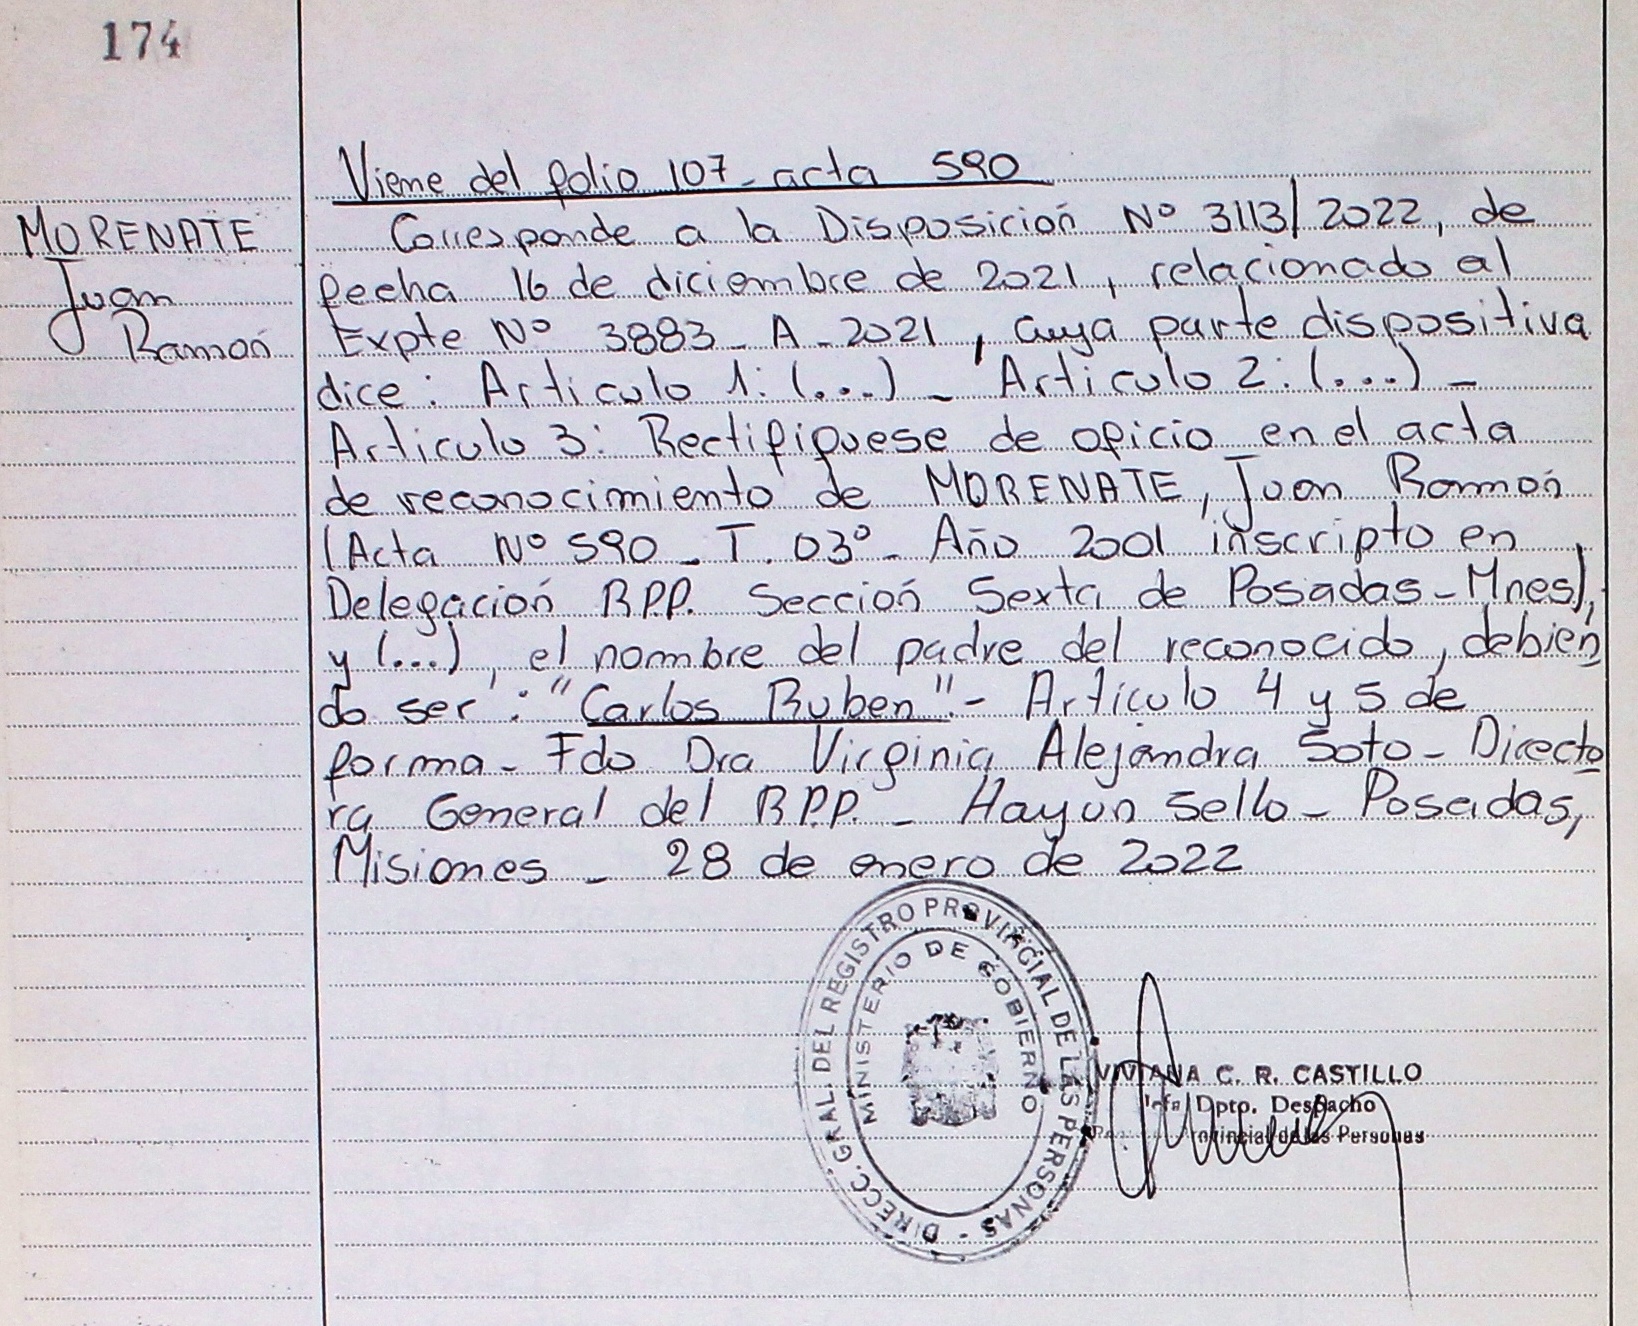 174
Viene del folio 107- acta 590
MORENATE
Juan
Ramón
Corresponde a la Disposición Nº 3113/2022, de
fecha 16 de diciembre de 2021, relacionado al
Expte Nº 3883 - A - 2021, cuya parte dispositiva
dice: Articulo 1: (...) - Articulo 2: (...) -
Articulo 3: Rectifiquese de oficio en el acta
de reconocimiento de MORENATE, Juan Ramón
(Acta Nº 590 - T. 03º - Año 2001 inscripto en
Delegación RPP. Sección Sexta de Posadas - Mnes),
y (...), el nombre del padre del reconocido, debien
do ser: "Carlos Ruben".- Articulo 4 y 5 de
forma - Fdo Dra Virginia Alejandra Soto - Directo
ra General del RPP. - Hay un sello - Posadas,
Misiones - 28 de enero de 2022
DIRECC. GRAL. DEL REGISTRO PROVINCIAL DE LAS PERSONAS -
MINISTERIO DE GOBIERNO
VIVIANA C. R. CASTILLO
Jefa Dpto. Despacho
Provincial de las Personas